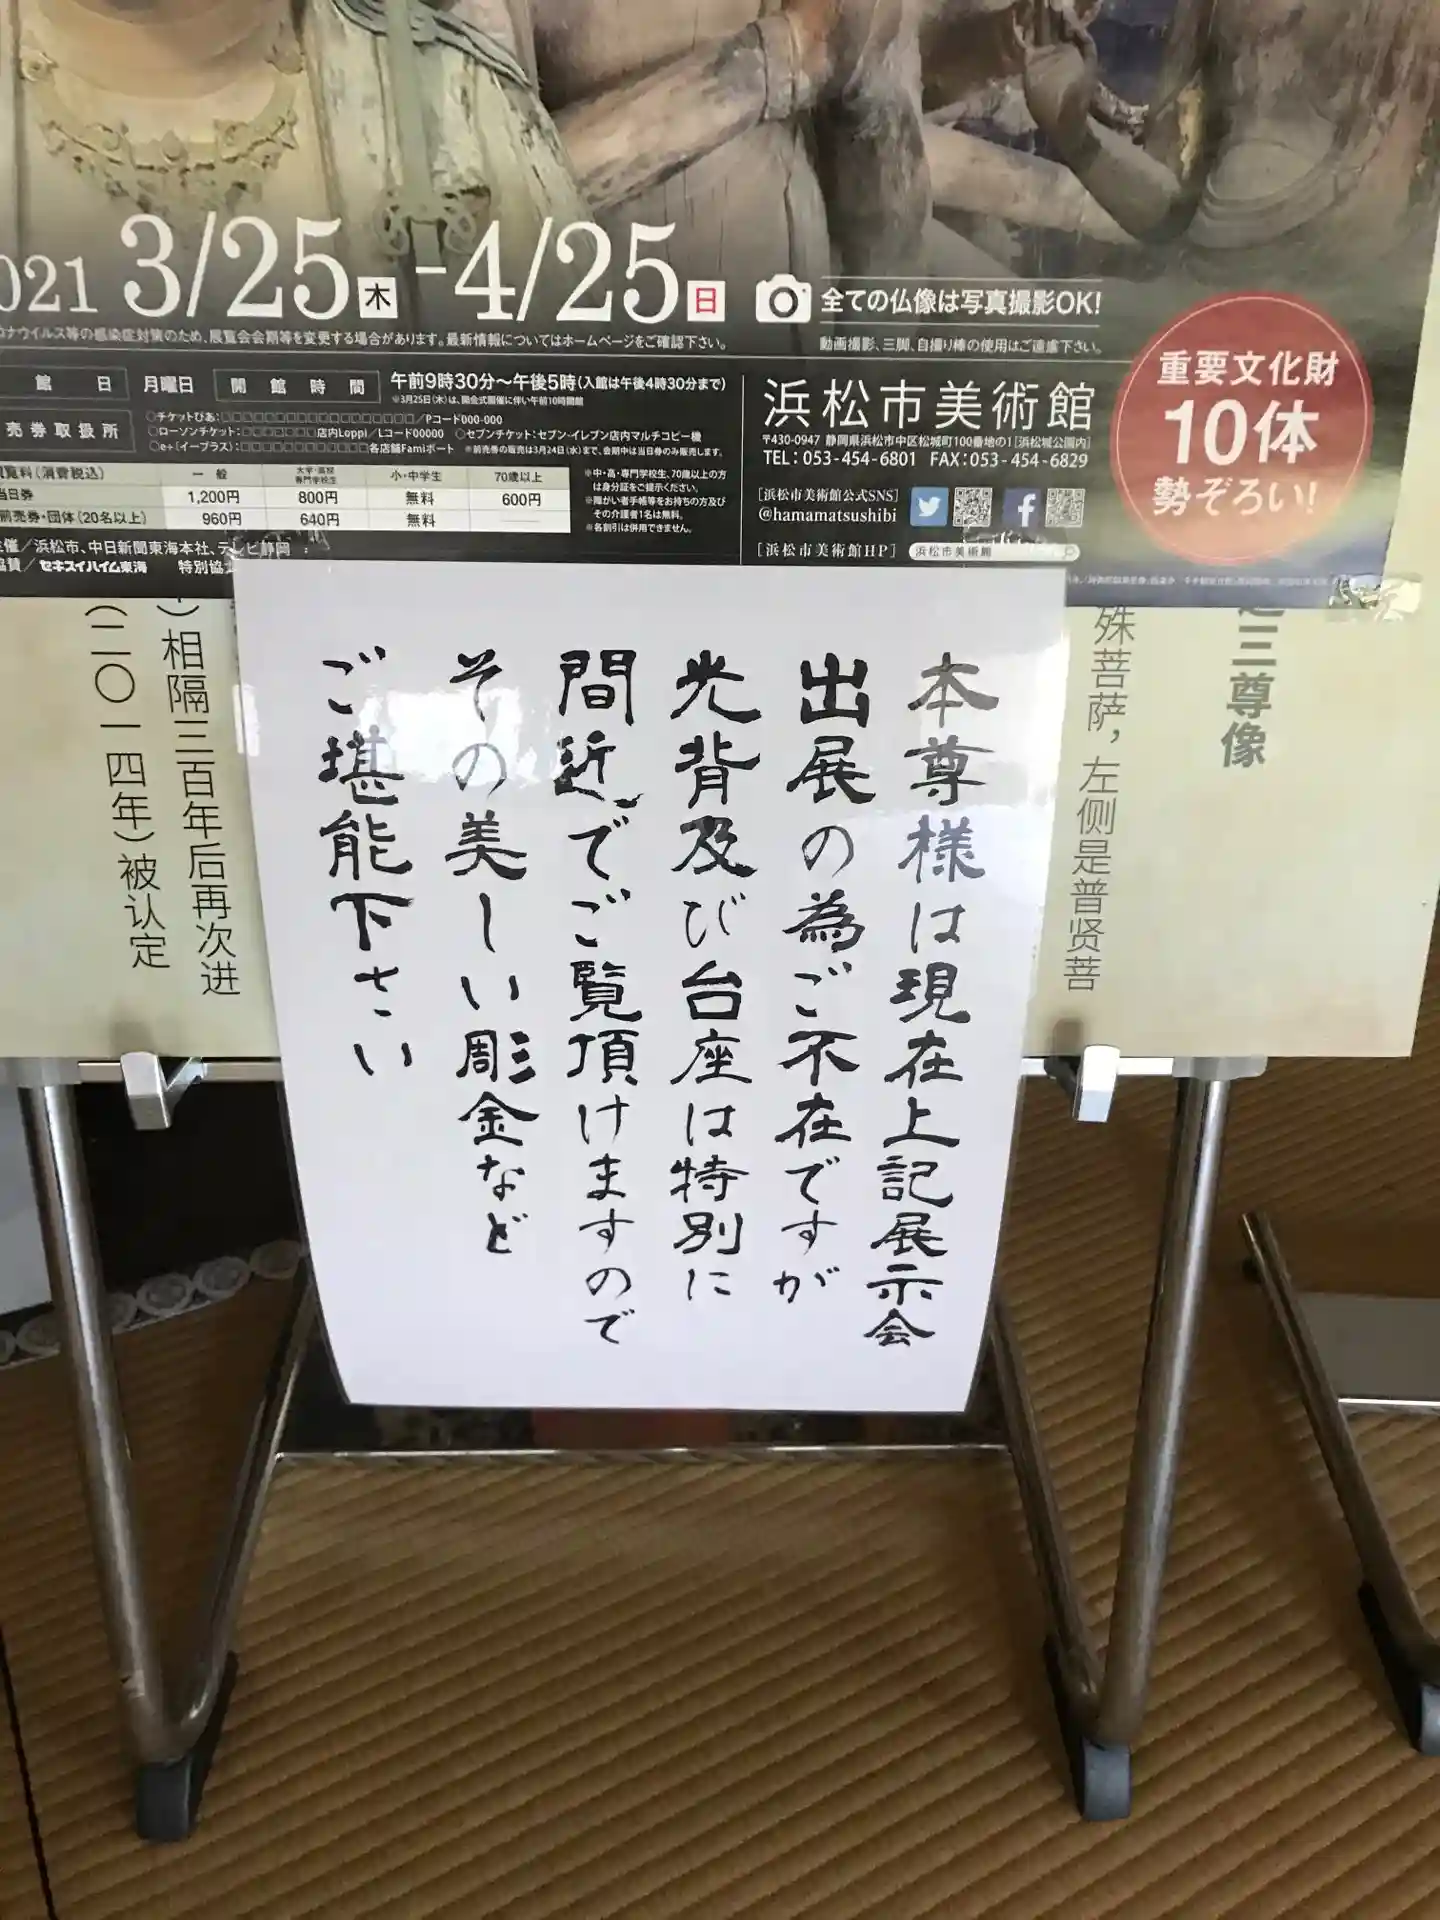 021 3/25 木 -4/25 日
全ての仏像は写真撮影OK!
ロナウイルス等の感染症対策のため、展覧会会期等を変更する場合があります。最新情報についてはホームページをご確認下さい。
動画撮影、三脚、自撮り棒の使用はご遠慮下さい。
館日 月曜日 開館時間 午前9時30分〜午後5時(入館は午後4時30分まで)
※3月25日(木)は、開会式開催に伴い午前10時開館
売券取扱所
○チケットぴあ:□□□□□□□□□□□□□□□□□□/Pコード000-000
○ローソンチケット:□□□□□□□店内Loppi/Lコード00000 ○セブンチケット:セブン-イレブン店内マルチコピー機
○e+(イープラス):□□□□□□□□□□□□各店舗Famiポート ※前売券の販売は3月24日(水)まで、会期中は当日券のみ販売します。
観覧料(消費税込) 一般 大学・高校 専門学校生 小・中学生 70歳以上
当日券 1,200円 800円 無料 600円
前売券・団体(20名以上) 960円 640円 無料
※中・高・専門学校生、70歳以上の方
は身分証をご提示ください。
※障がい者手帳等をお持ちの方及び
その介護者1名は無料。
※各割引は併用できません。
主催/浜松市、中日新聞東海本社、テレビ静岡
協賛/セキスイハイム東海 特別協
浜松市美術館
〒430-0947 静岡県浜松市中区松城町100番地の1[浜松城公園内]
TEL:053-454-6801 FAX:053-454-6829
[浜松市美術館公式SNS]
@hamamatsushibi
[浜松市美術館HP] 浜松市美術館
重要文化財
10体
勢ぞろい!
三尊像
殊菩萨，左侧是普贤菩
本尊様は現在上記展示会
出展の為ご不在ですが
光背及び台座は特別に
間近でご覧頂けますので
その美しい彫金など
ご堪能下さい
)相隔三百年后再次进
(二〇一四年)被认定